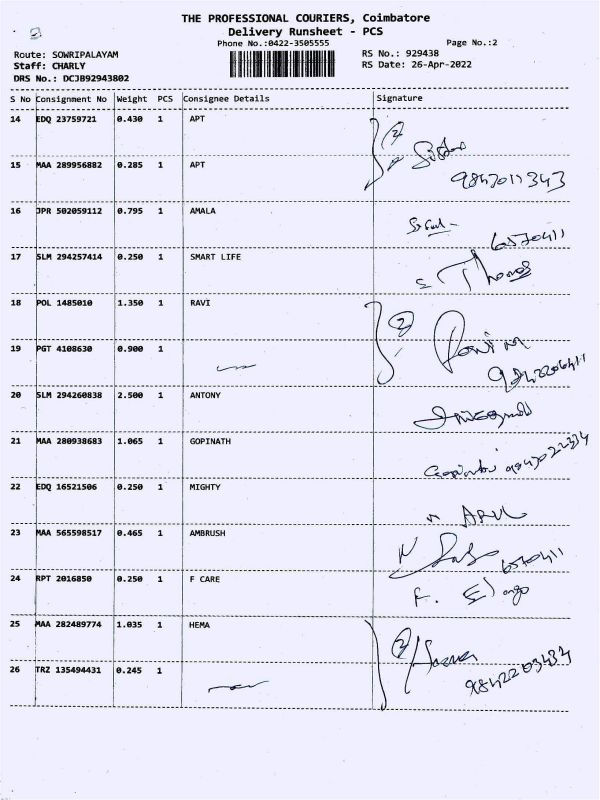 THE PROFESSIONAL COURIERS, Coimbatore
Delivery Runsheet - PCS
Phone No.:0422-3505555
Page No.:2
Route: SOWRIPALAYAM
RS No.: 929438
Staff: CHARLY
RS Date: 26-Apr-2022
DRS No.: DCJB92943802
S No Consignment No Weight PCS Consignee Details Signature
14 EDQ 23759721 0.430 1 APT
2
15 MAA 289956882 0.285 1 APT
9843011343
16 JPR 502059112 0.795 1 AMALA
6570411
17 SLM 294257414 0.250 1 SMART LIFE
Thomas
18 POL 1485010 1.350 1 RAVI
2
19 PGT 4108630 0.900 1
9842206411
20 SLM 294260838 2.500 1 ANTONY
21 MAA 280938683 1.065 1 GOPINATH
Gopinath 9843022334
22 EDQ 16521506 0.250 1 MIGHTY
ARUL
23 MAA 565598517 0.465 1 AMBRUSH
6570411
24 RPT 2016850 0.250 1 F CARE
F. Elango
25 MAA 282489774 1.035 1 HEMA
2
26 TRZ 135494431 0.245 1
9842203434